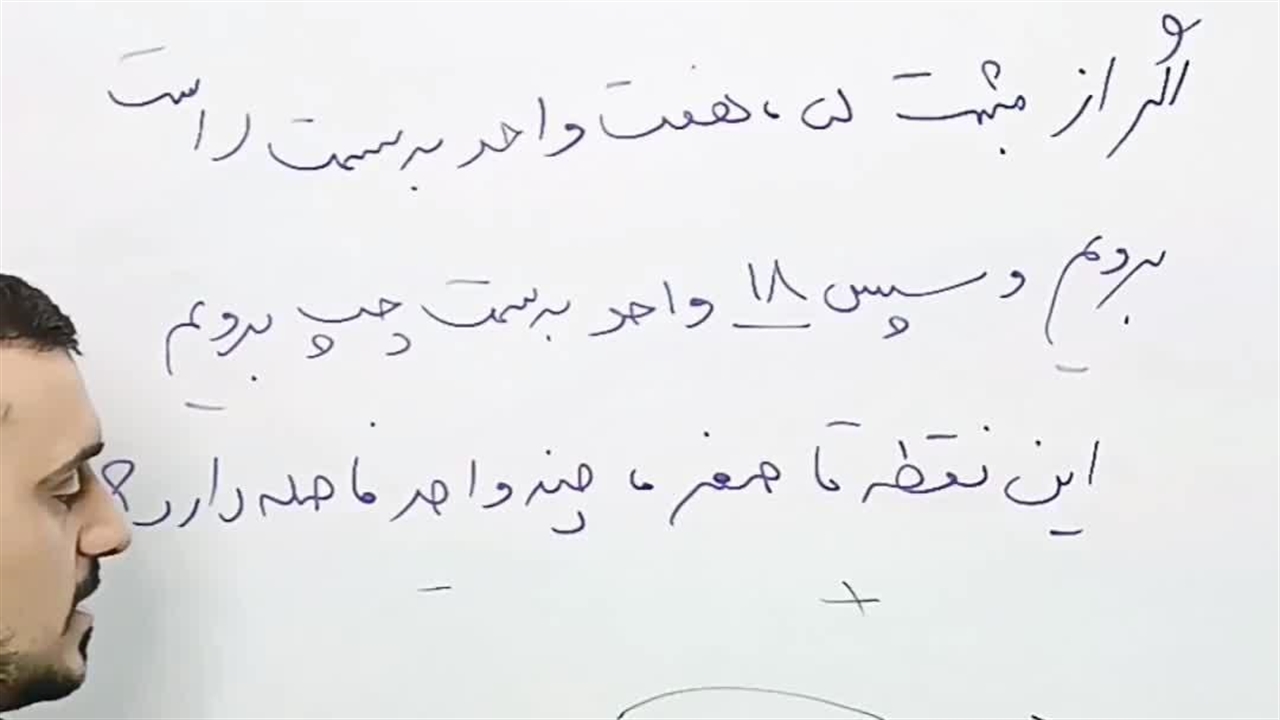 اگر از مثبت ۵، هفت واحد به سمت راست
برویم و سپس ۱۸ واحد به سمت چپ برویم
این نقطه تا صفر، چند واحد فاصله دارد؟
- +